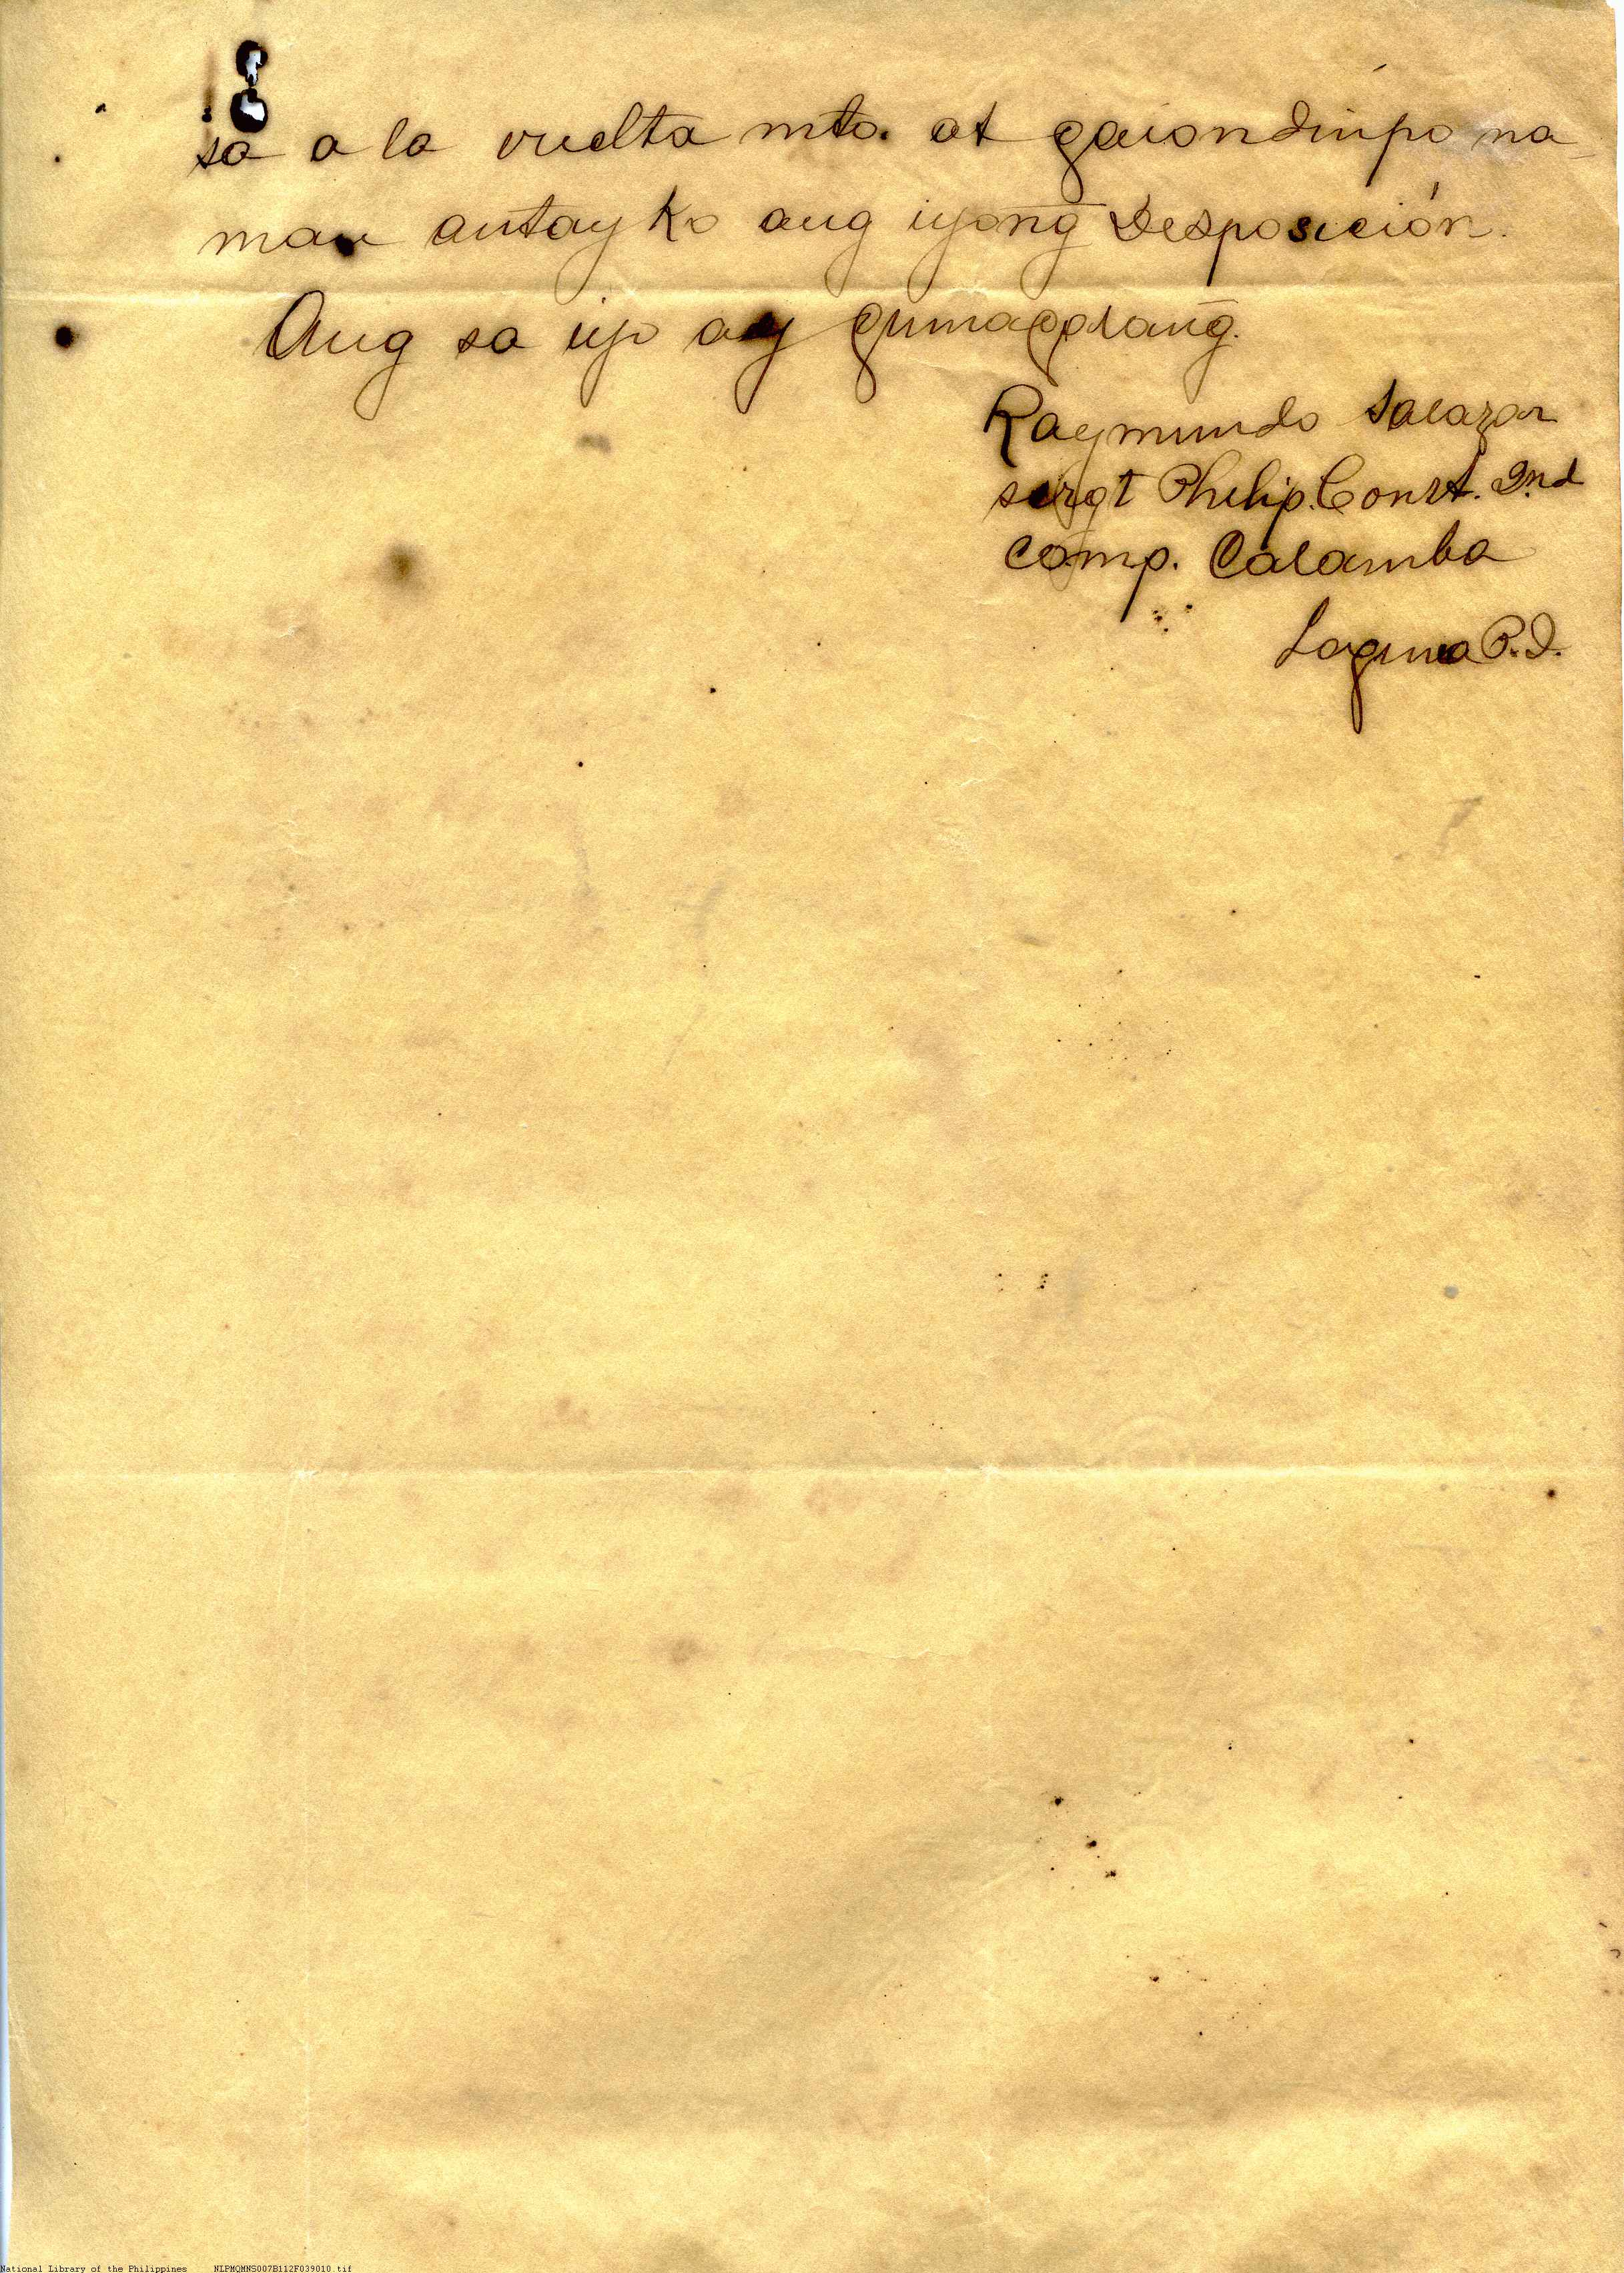 sa a la vuelta mto. at gaiondinpo na
man antay ko ang iyong̃ Desposición.
Ang sa iyo ay gumagalang̃.
Raymundo Salazar
sergt Philip. Const. 2nd
Comp. Calamba
Laguna P.I.
National Library of the Philippines NLPMQMNS007B112F039010.tif